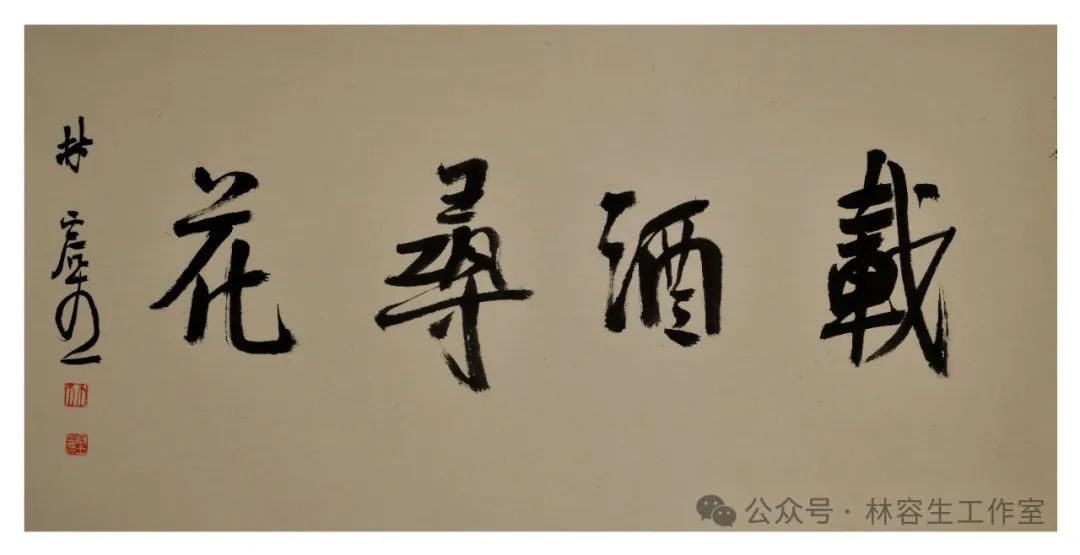 載酒尋花
林
公众号·林容生工作室